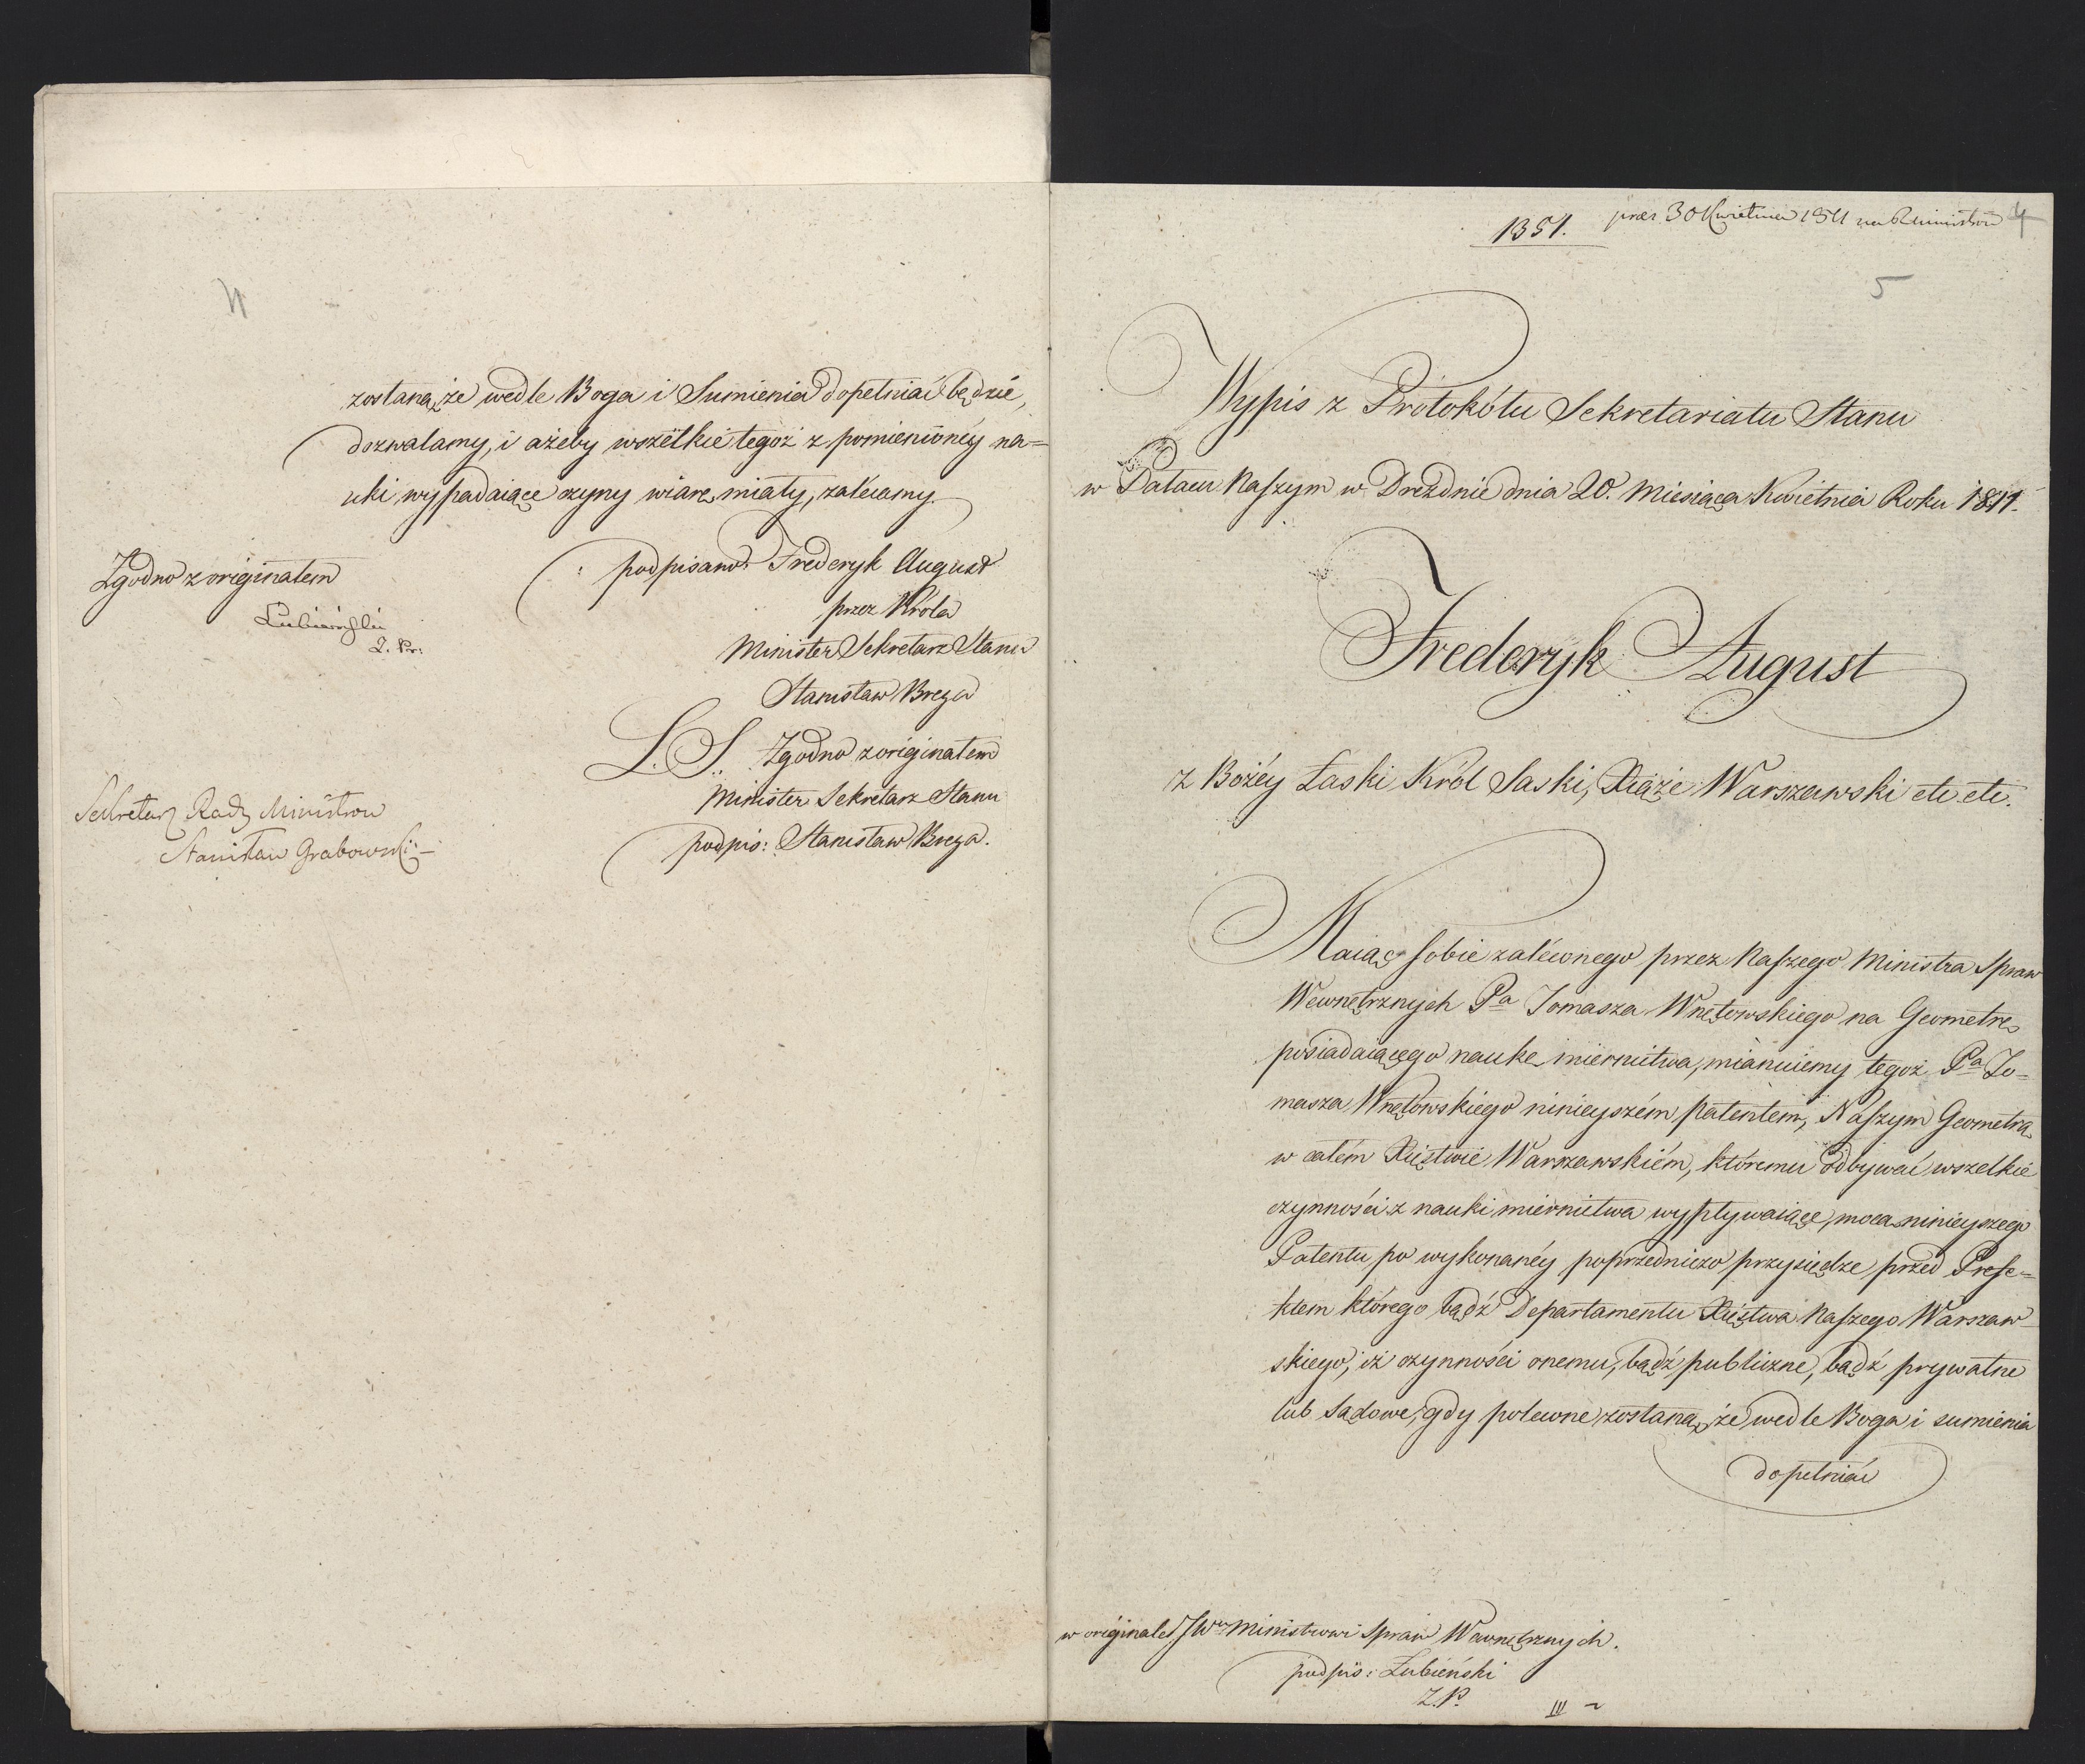 4
zostaną, że wedle Boga i Sumienia dopełniać będzie,
dozwalamy, i ażeby wszelkie tegoż z pomienionéy na=
uki wypadaiące czyny wiarę miały, zalécamy.
podpisano: Frederyk August
przez Króla
Minister Sekretarz Stanu
Stanisław Breza
L. S. Zgodno z originałem
Minister Sekretarz Stanu
podpis: Stanisław Breza.
Zgodno z originałem
Łubieński
Z. Pr:
Sekretarz Rady Ministrow
Stanisław Grabowski
1351. prez 30 Kwietnia 1811 4
5
Wypis z Protokółu Sekretariatu Stanu
w Pałacu Naszym w Dreźdnie dnia 20. Miesiąca Kwietnia Roku 1811.
Frederyk August
z Bożéy Łaski Król Saski, Xiąże Warszawski etc etc.
Maiąc sobie zaléconego przez Naszego Ministra Spraw
Wewnętrznych Pa Tomasza Wnętowskiego na Geometrę
posiadaiącego naukę miernictwa, mianuiemy tegoż Pa To=
masza Wnętowskiego ninieyszém patentem, Naszym Geometrą
w całém Xięstwie Warszawskiém, któremu odbywać wszelkie
czynności z nauki miernictwa wypływaiące, mocą ninieyszego
Patentu po wykonanéy poprzedniczo przysiędze przed Prefe=
ktem którego bądź Departamentu Xięstwa Naszego Warszaw=
skiego, iż czynności onemu, bądź publiczne, bądź prywatne
lub sądowe, gdy polecone zostaną, że wedle Boga i sumienia
dopełniać
w originale JWu Ministrowi Spraw Wewnętrznych.
podpis: Łubieński
Z. P.
III